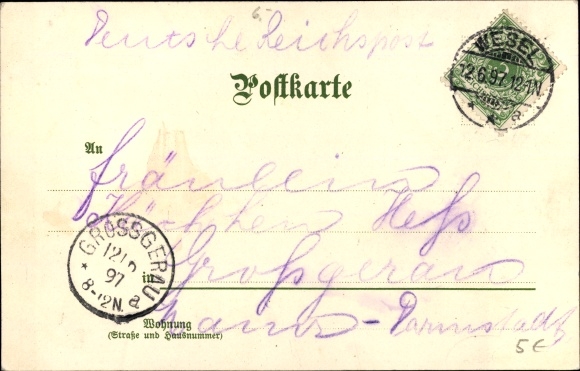 Deutsche Reichspost
WESEL
12.6.97.12-1N.
* * a
Postkarte
An
Fräulein
Käthchen Heß
GROSSGERAU
12
97
8-12N.
* a
in Großgerau
Darmstadt
Wohnung
(Straße und Hausnummer)
5€